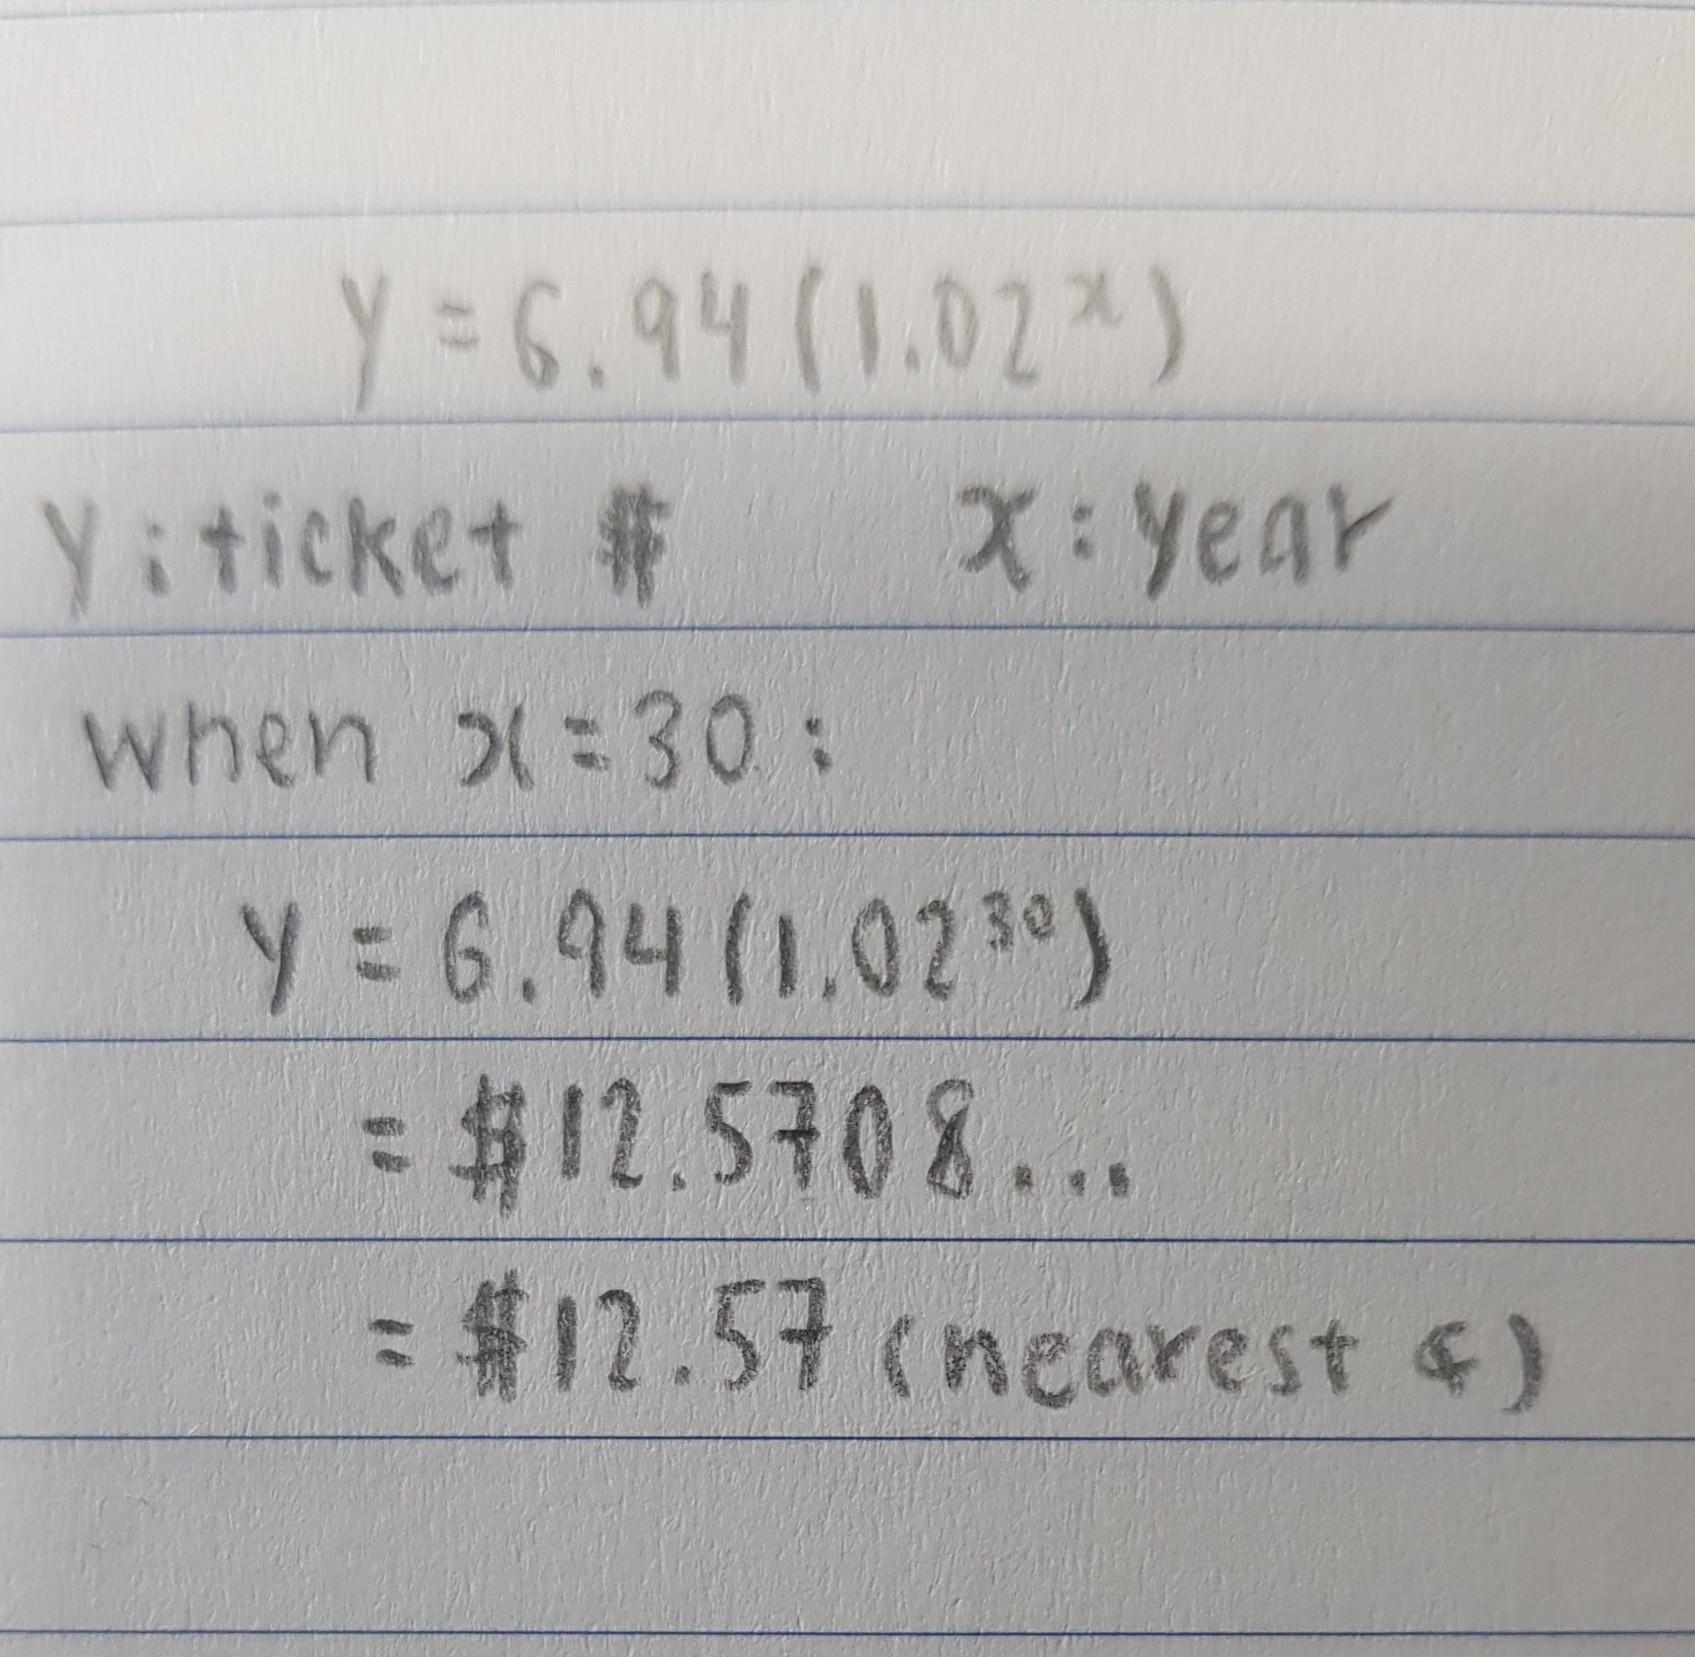 y = 6.94 (1.02^x)
y : ticket $ x : year
when x = 30 :
y = 6.94 (1.02^30)
= $12.5708...
= $12.57 (nearest ¢)